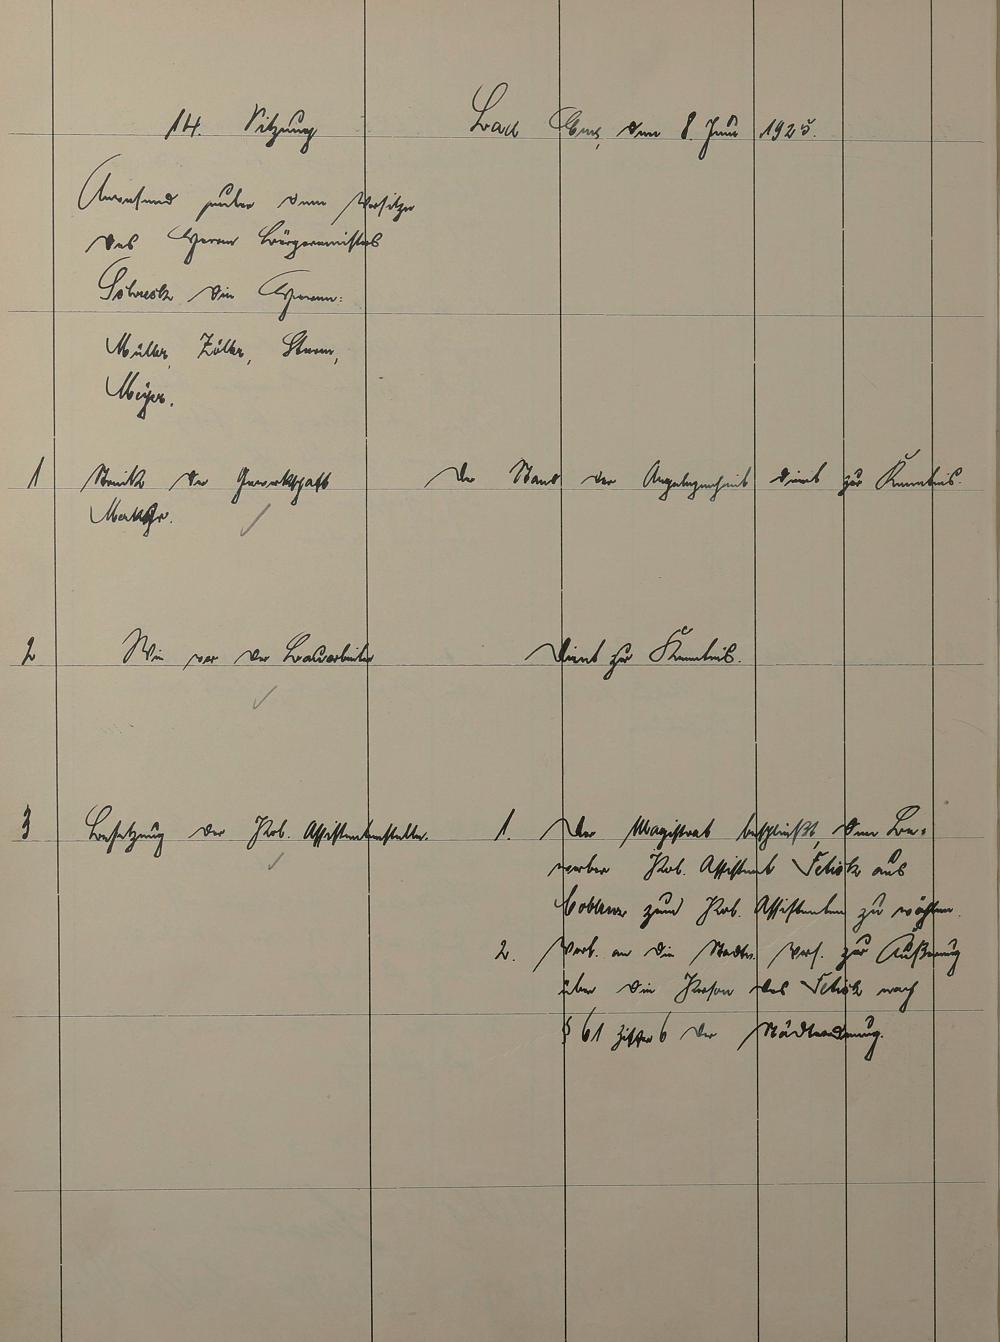 14. Sitzung
Bad Ems, den 8. Juni 1925.
Anwesend unter dem Vorsitze
des Herrn Bürgermeisters
Schreck die Herren:
Müller, Zöller, Stamm,
Meyer.
1 Streik der Gewerkschaft
Der Stand der Angelegenheit dient zur Kenntnis.
2 Wie vor der Bauarbeiter
Dient zur Kenntnis.
3 Besetzung der Pol. Assistentenstelle.
1. Der Magistrat beschließt, den Be-
werber Pol. Assistent aus
Coblenz zum Pol. Assistenten zu wählen.
2. Vorl. an die Stadtv. Vers. zur Äußerung
über die Person des nach
§ 61 Ziffer 6 der Städteordnung.